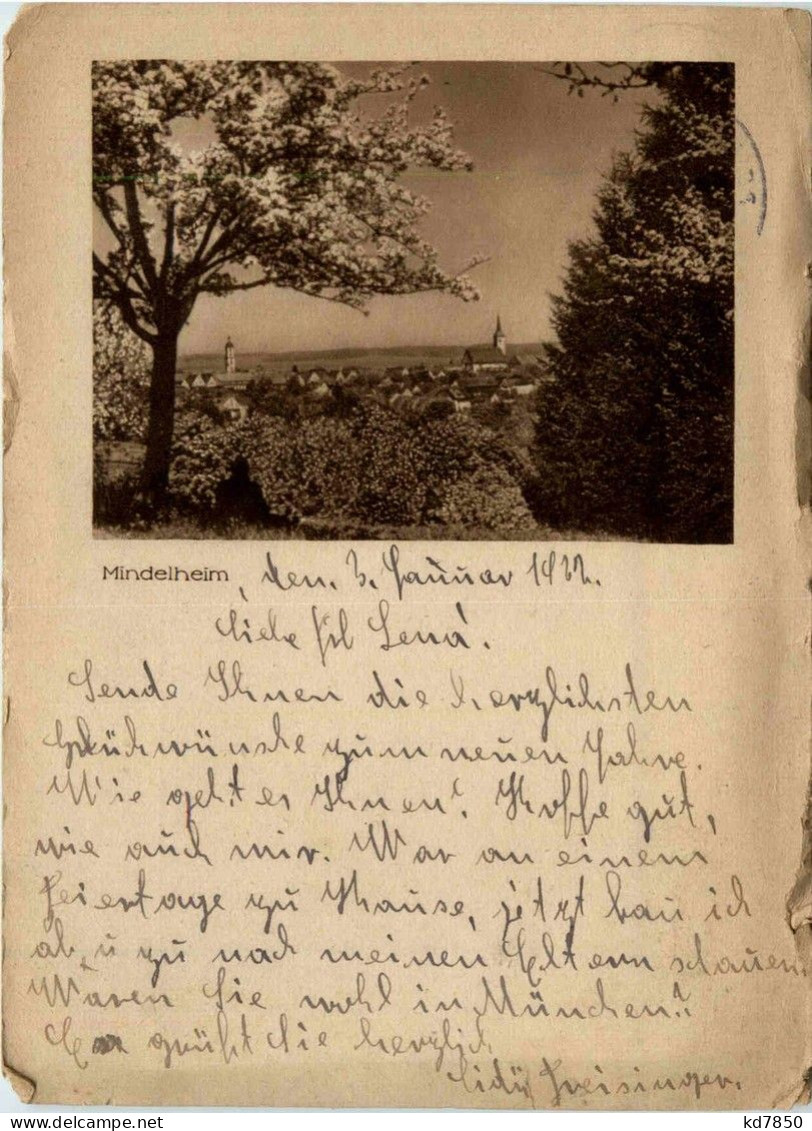 Mindelheim, den. 3. Januar
Liebe Frl Lena!
Sende Ihnen die herzlichsten
Glückwünsche zum neuen Jahre.
Wie geht es Ihnen? Hoffe gut,
wie auch mir. War an einem
Feiertage zu Hause, jetzt ich
ab u zu nach meinen Eltern schauen.
Waren Sie wohl in München?
Es grüßt Sie herzlich
Freisinger.
www.delcampe.net
kd7850